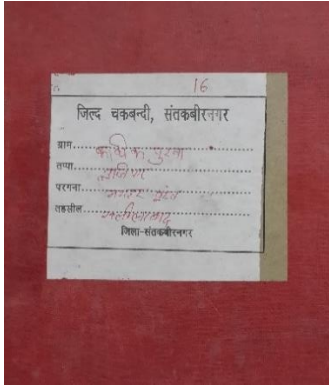 16
जिल्द चकबन्दी, संतकबीरनगर
ग्राम
तप्पा
परगना मगहर पूरब
तहसील खलीलाबाद
जिला-संतकबीरनगर